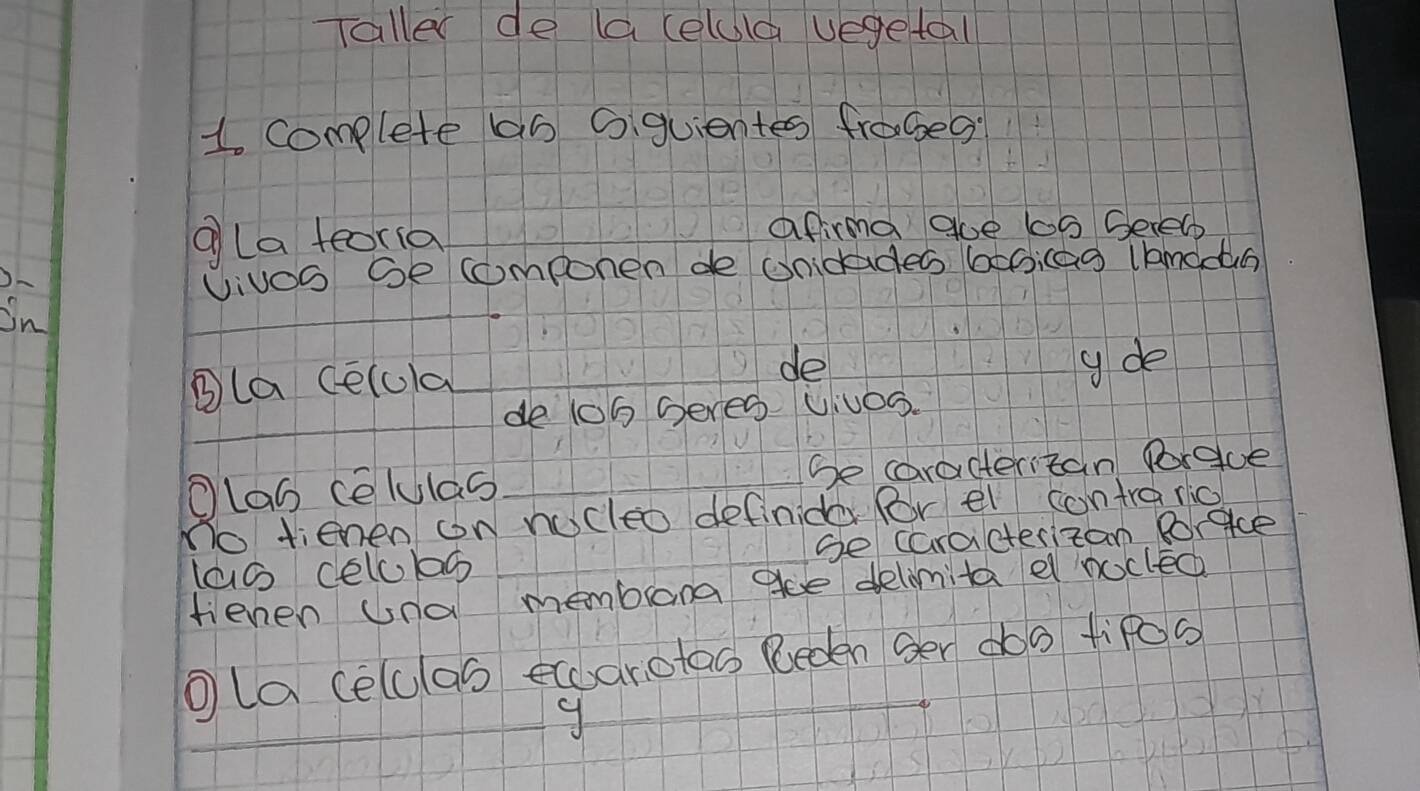 Taller de la celula vegetal
1. Complete las siguientes frases:
a) La teoria ____________ afirma que los seres
vivos se componen de unidades basicas llamadas
____________.
B) La célula ____________ de ____________ y de
____________ de los seres vivos.
C) Las células ____________ se caracterizan Porque
no tienen un nucleo definido. Por el contrario
las celulas ____________ se caracterizan Porque
tienen una membrana que delimita el nucleo
D) La células eucariotas Pueden ser dos tipos
____________ y ____________.
on